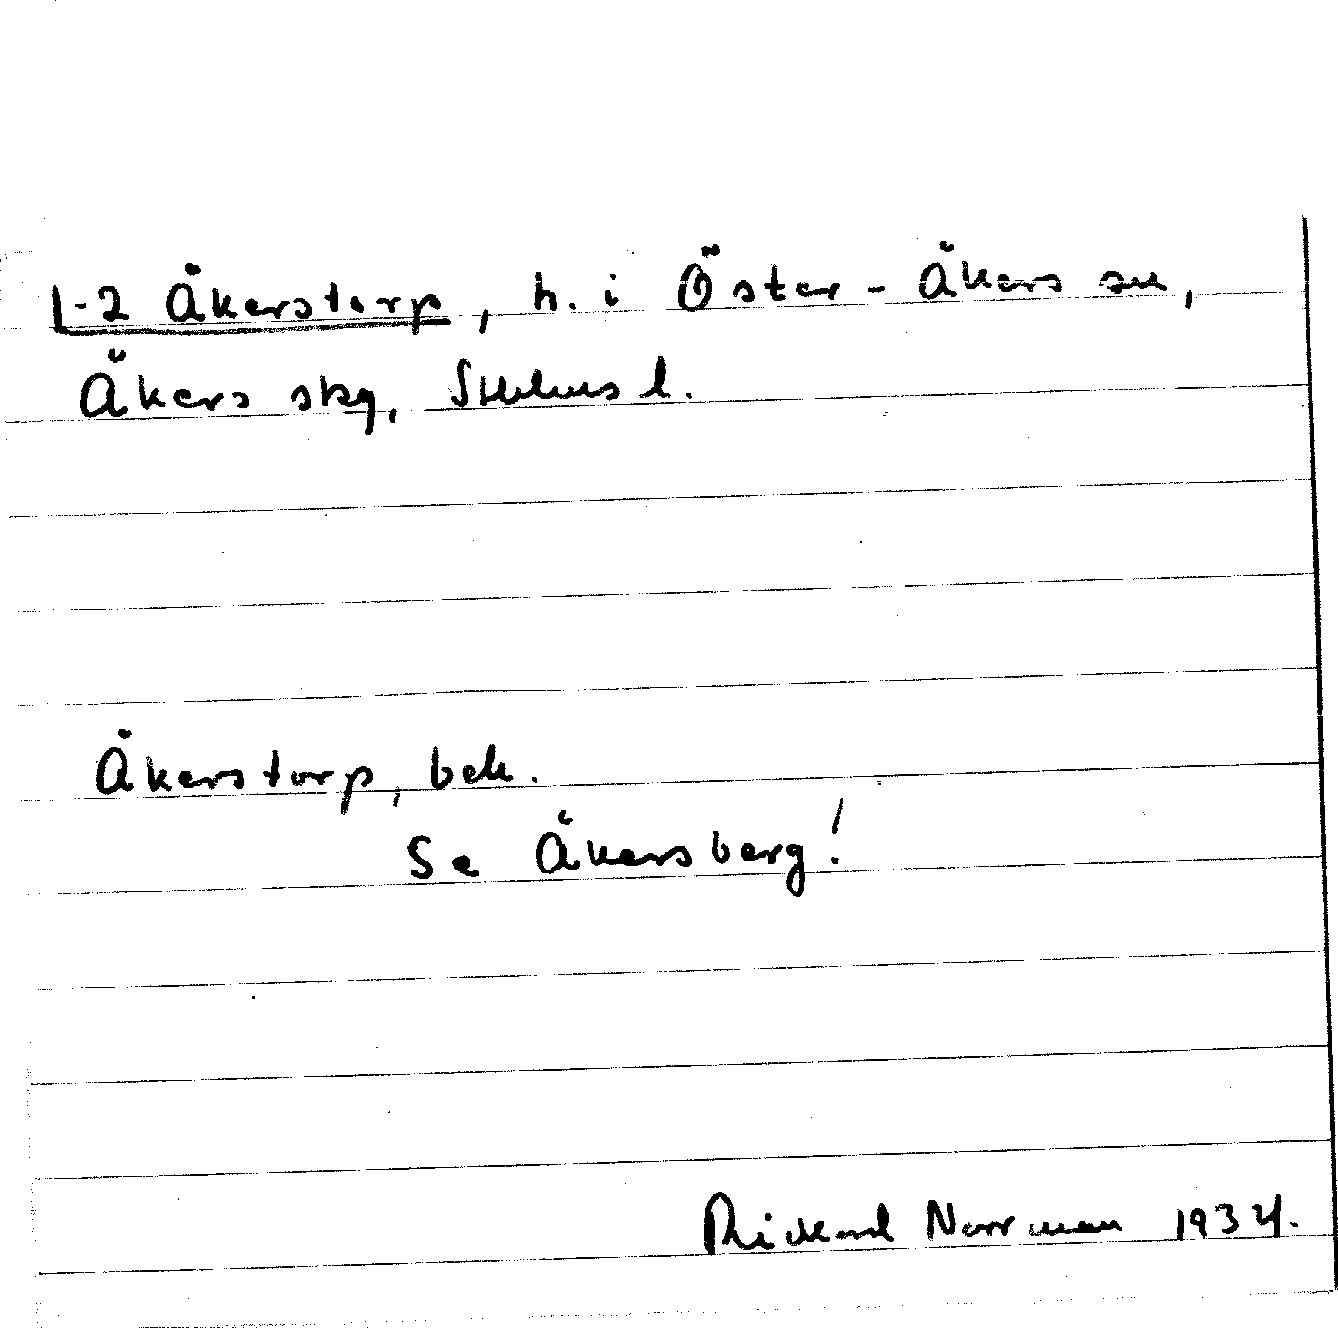 1-2 Åkerstorp, h. i Öster-Åkers sn,
Åkers skg, Sthlms l.
Åkerstorp, bek.
Se Åkersberg!
Rickard Norrman 1934.